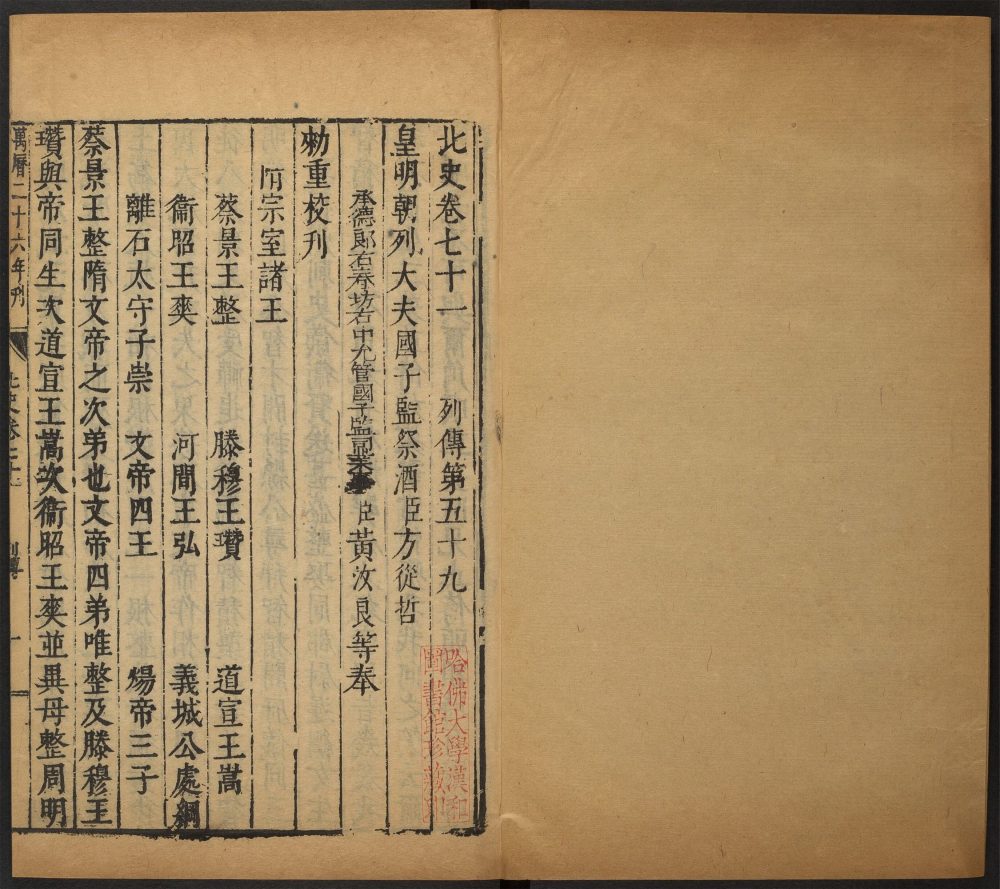 北史卷七十一　列傳第五十九
皇明朝列大夫國子監祭酒臣方從哲
承德郎右春坊右中允管國子監司業事臣黃汝良等奉
勑重校刊
隋宗室諸王
蔡景王整　滕穆王瓚　道宣王嵩
衞昭王爽　河間王弘　義城公處綱
離石太守子崇　文帝四王　煬帝三子
蔡景王整隋文帝之次弟也文帝四弟唯整及滕穆王
瓚與帝同生次道宣王嵩次衞昭王爽並異母整周明
萬曆二十六年刊
北史卷七十一
列傳
一
哈佛大學漢和
圖書館珍藏印